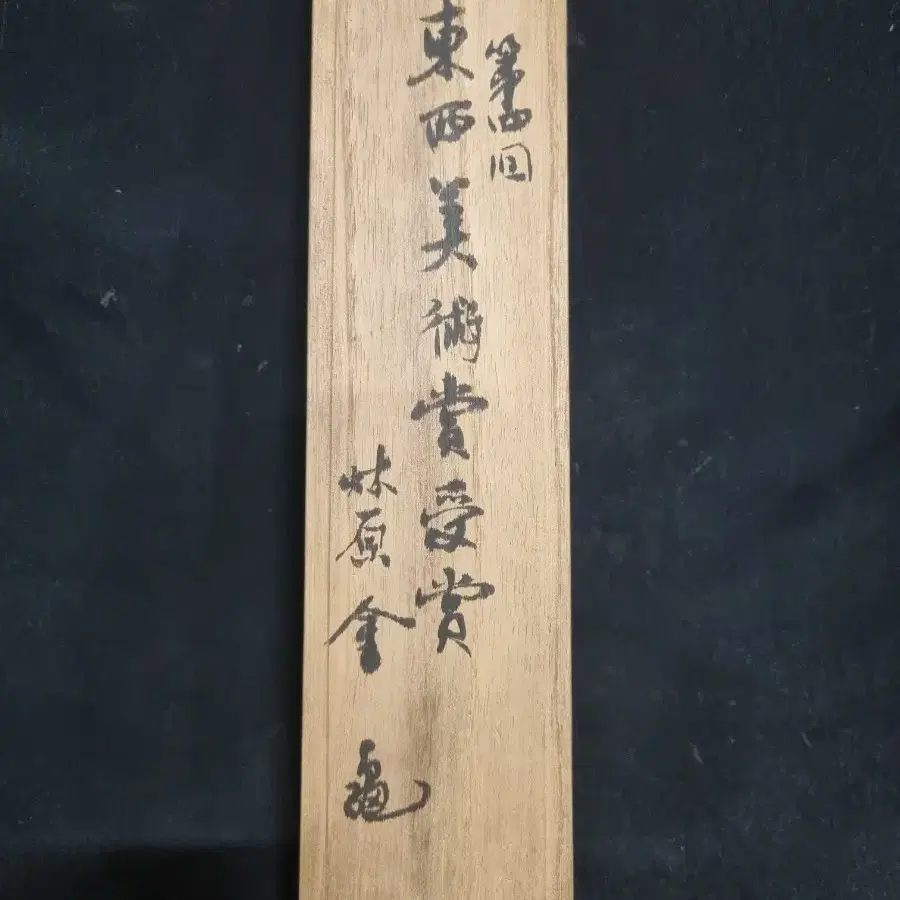 第四回
東西美術賞受賞
林原金亀